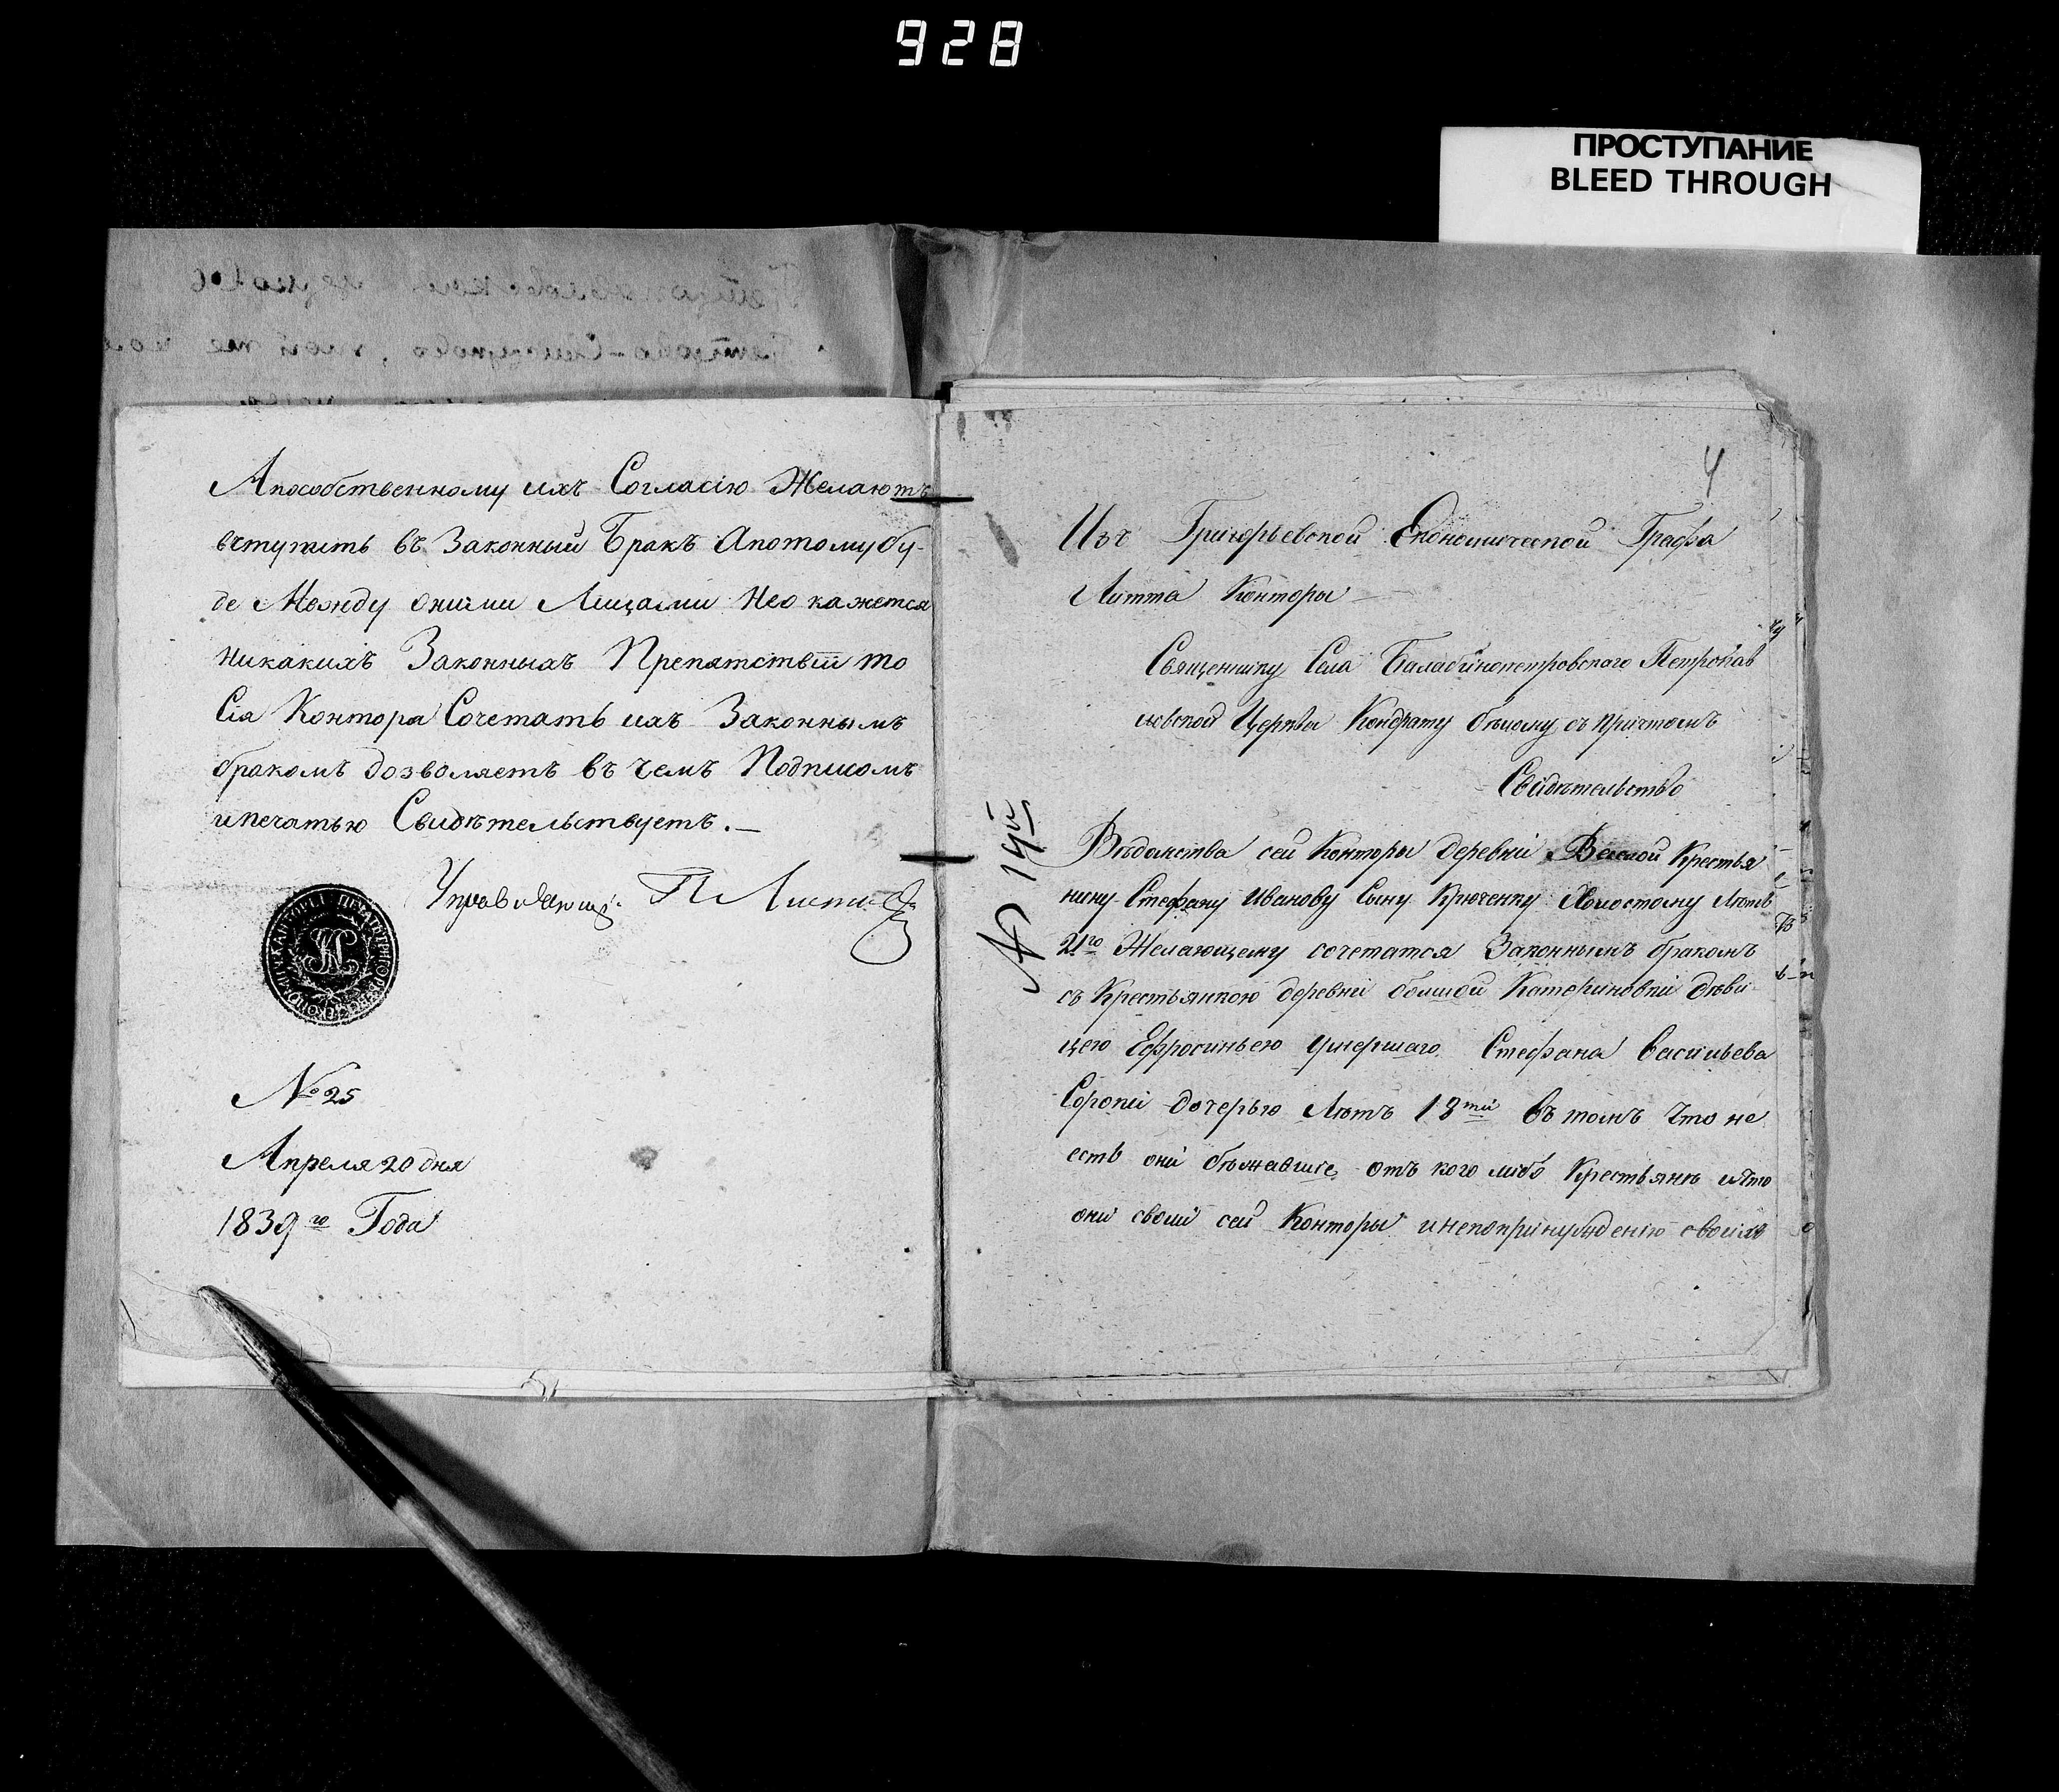 928
ПРОСТУПАНИЕ
BLEED THROUGH
Апособственному ихъ Согласію Желаютъ
вступить въ Законный Бракъ Апотому бу-
де Между оными Лицами Нео кажется
никакихъ Законныхъ Препятствій то
Сія Контора Сочетать ихъ Законнымъ
бракомъ дозволяетъ въ чемъ Подписомъ
ипечатью Свидѣтельствуетъ.—
Управляющій
№ 25
Апреля 20 дня
1839го Года
4
Изъ Григорьевской Економической Графа
Литта Конторы
Священнику Села Балабинопетровского Петропав
ловской Церкви Кондрату Бѣлому съ причтомъ
Свидѣтельство
№ 14й
Вѣдомства сей Конторы деревни Крестья
нину Стефану Иванову Сыну Крюченку Холостому Лѣтъ
21го Желающему сочетатся Законнымъ бракомъ
съ Крестьянкою деревни Катериновки дѣви
цею Ефросиньею Умершаго Стефана Васильева
Сороки дочерью Лѣтъ 18ти въ томъ что не
есть они бѣжавшіе отъ кого либо Крестьянъ ичто
они свои сей Конторы инепопринужденію своимъ